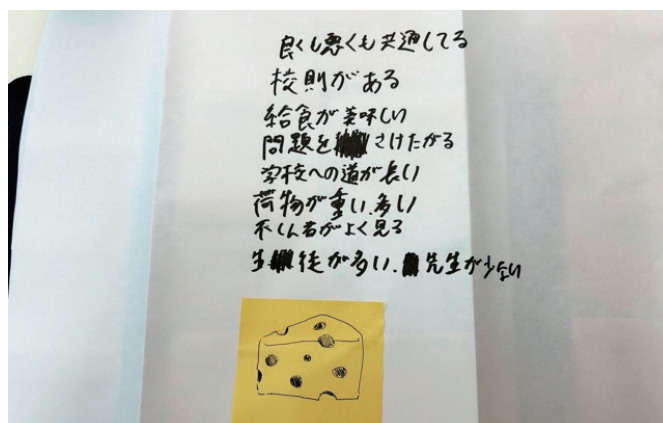 良くも悪くも共通してる
校則がある
給食が美味しい
問題をさけたがる
学校への道が長い
荷物が重い、多い
不しん者がよく見る
生徒が多い、先生が少ない